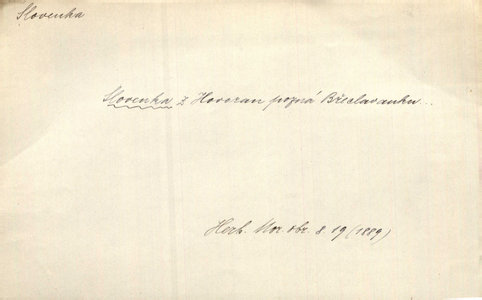 Slovenka
Slovenka z Hovoran pozná Břeclavanku..
Herb. Mor. obr. 8 19 (1889)